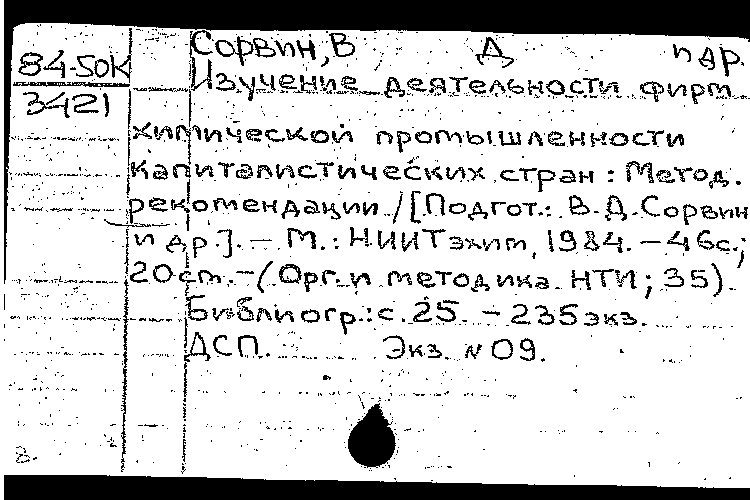 84-50К
3421
Сорвин, В Д и др.
Изучение деятельности фирм
химической промышленности
капиталистических стран : Метод.
рекомендации / [Подгот.: В.Д.Сорвин
и др.]. – М.: НИИТэхим, 1984. – 46с.;
20см. – (Орг. и методика НТИ; 35).
Библиогр.: с. 25. – 235экз.
ДСП. Экз. N 09.